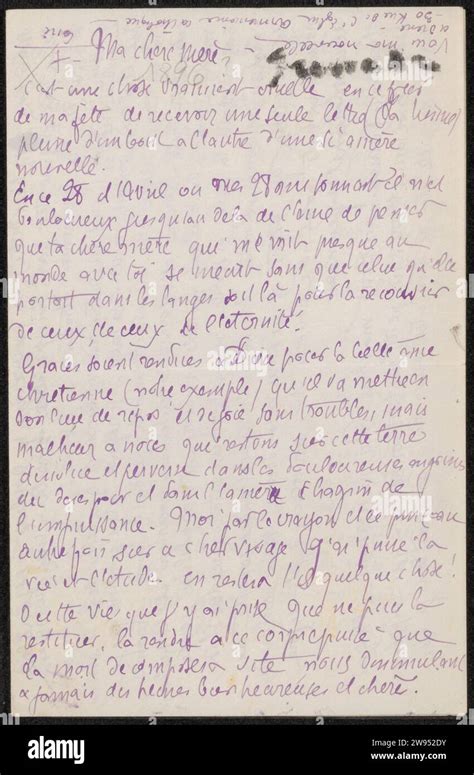 Vou ma nouvelle
adresse
30 Rue de l'Eglise Armenienne catholique
+ Ma chère mère
1896
C'est une chose vraiment cruelle en ce jour
de ma fête de recevoir une seule lettre (la tienne)
pleine d'un bout à l'autre d'une si amère
nouvelle.
En ce 28 d'Avril où mes 28 ans sonnent il m'est
douloureux jusqu'au delà de l'âme de penser
que ta chère mère qui me mit presque au
monde avec toi se meurt sans que celui qu'elle
portait dans les langes soit là pour la recouvrir
de ceux, de ceux de l'éternité.
Graces soient rendues à Dieu pour la belle âme
chretienne (notre exemple) qu'il va mettre en
son lieu de repos et de joie sans troubles, mais
malheur a nous que restons sur cette terre
du vice et perverse dans les douloureuses angoisses
du desespoir et dans l'amère chagrin de
l'impuissance. Moi par le crayon et le pinceau
autrefois sur ce cher visage j'ai puisé la
vie et l'etude en restera-t-il quelque chose!
O cette vie que j'y ai prise que ne puis-la
restituer, la rendre a ce corps epuisé que
la mort decomposera vite nous dissimulant
a jamais des heures bienheureuses et chères.
alamy
Image ID: 2W952DY
www.alamy.com